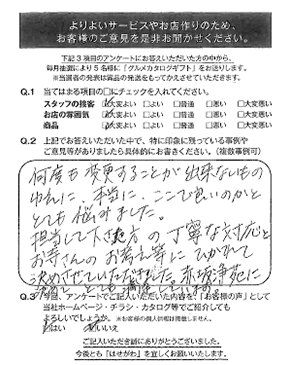 よりよいサービスやお店作りのため、
お客様のご意見を是非お聞かせください。
下記3項目のアンケートにお答えいただいた方の中から、
毎月抽選により5名様に「グルメカタログギフト」をお送りします。
※当選者の発表は賞品の発送をもってかえさせていただきます。
Q.1 当てはまる項目の□にチェックを入れてください。
スタッフの接客 ☑大変よい □よい □普通 □悪い □大変悪い
お店の雰囲気 ☑大変よい □よい □普通 □悪い □大変悪い
商品 ☑大変よい □よい □普通 □悪い □大変悪い
Q.2 上記でお答えいただいた中で、特に印象に残っている事例や
ご意見等がありましたら具体的にお書きください。(複数事例可)
何度も変更することが出来ないもの
ゆえに、本当に、ここで良いのかと
とても悩みました。
担当して下さった方の丁寧な対応と
お寺さんのお考え等にひかれて
決めさせていただきました。赤坂浄苑に
Q.3 今回、アンケートでご記入いただいた内容を、「お客様の声」として
当社ホームページ・チラシ・カタログ等でご紹介しても
よろしいでしょうか。※お客様の個人情報は掲載しません。
はい □いいえ
ご記入いただき誠にありがとうございました。
今後とも「はせがわ」を宜しくお願いいたします。